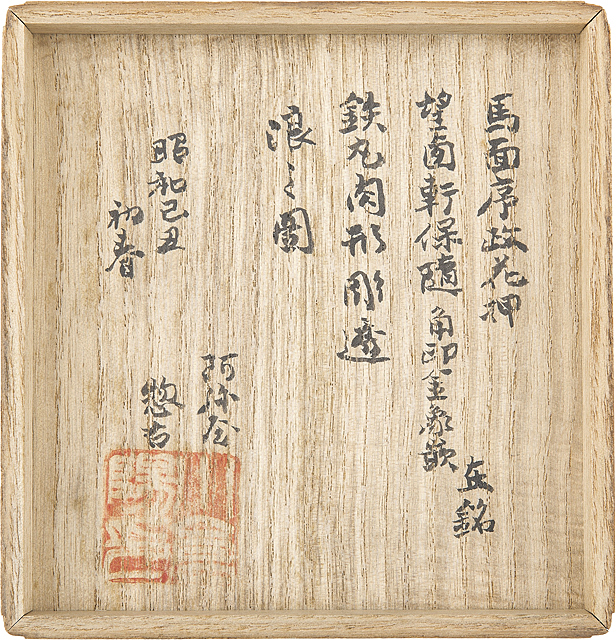 馬面序政花押
望南軒保随角印金象嵌
在銘
鉄丸肉形彫透
浪之図
昭和己丑
初春
阿弥屋
惣吉